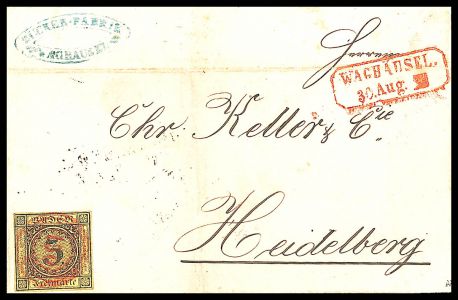 ZUCKER-FABRIK
WAGHÄUSEL
Herren
WAGHÄUSEL.
30. Aug.
Chr. Keller & Cie
Heidelberg
BADEN
3
Freimarke